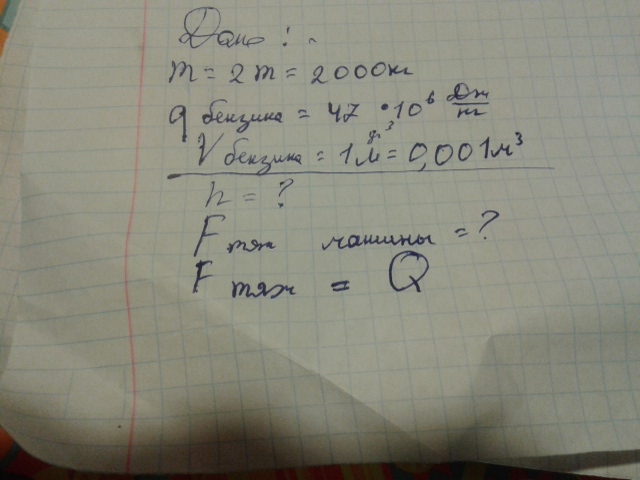 Дано:
m = 2 т = 2000 кг
q бензина = 47 · 10⁶ Дж/кг
V бензина = 1 дм³ = 0,001 м³
h = ?
F тяж машины = ?
F тяж = Q